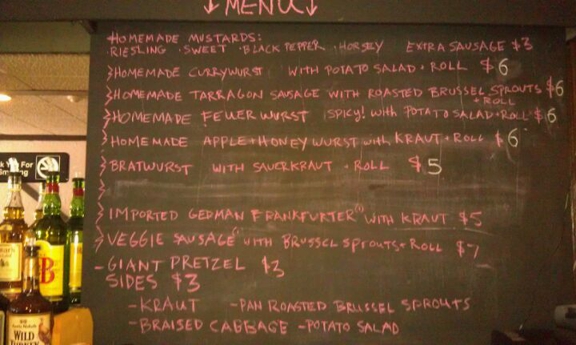 ↓MENU↓
HOMEMADE MUSTARDS:
RIESLING · SWEET · BLACK PEPPER · HORSEY EXTRA SAUSAGE $3
HOMEMADE CURRYWURST WITH POTATO SALAD + ROLL $6
HOMEMADE TARRAGON SAUSAGE WITH ROASTED BRUSSEL SPROUTS $6
+ ROLL
HOMEMADE FEUERWURST (SPICY!) WITH POTATO SALAD + ROLL $6
HOMEMADE APPLE + HONEY WURST WITH KRAUT + ROLL $6
BRATWURST WITH SAUERKRAUT + ROLL $5
IMPORTED GERMAN FRANKFURTER WITH KRAUT $5
VEGGIE SAUSAGE WITH BRUSSEL SPROUTS + ROLL $7
- GIANT PRETZEL $3
SIDES $3
- KRAUT - PAN ROASTED BRUSSEL SPROUTS
- BRAISED CABBAGE - POTATO SALAD
For
J&B
WILD
TURKEY